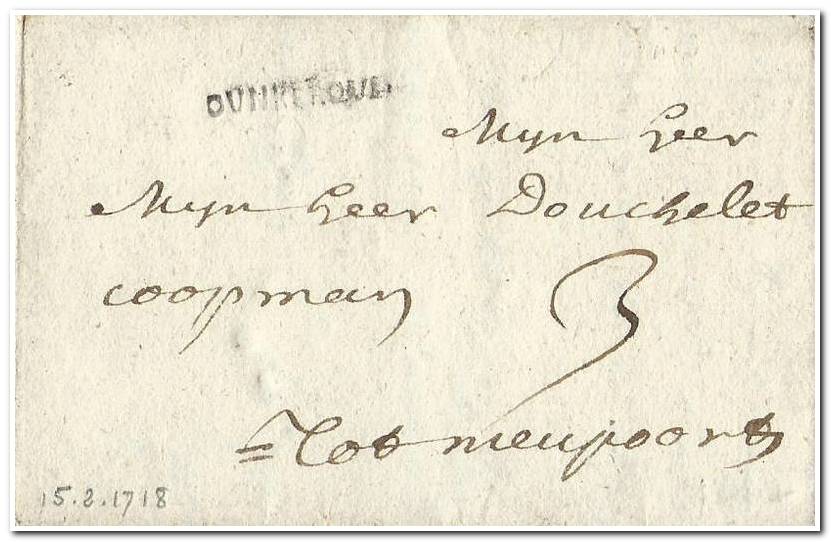 DUNKERQUE.
Mijn heer
Mijn heer Douchelet
coopman
3
Tot nieupoort
15.2.1718